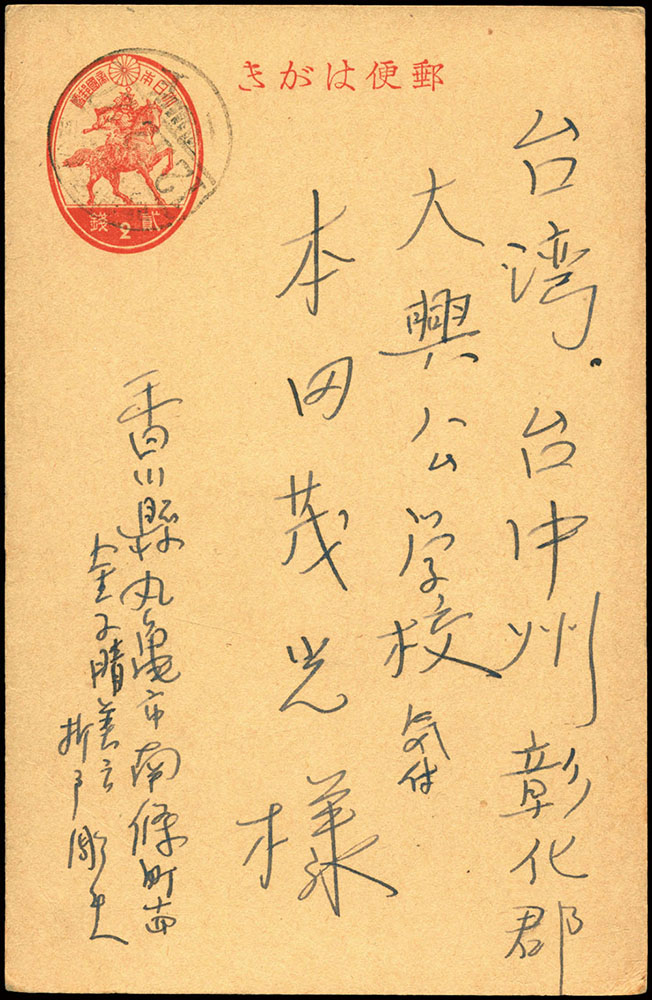 郵便はがき
大日本帝國郵便
貳錢
2
台湾．台中州彰化郡
大興公学校気付
本田茂光様
香川縣丸亀市南條町
金子晴美方
折戸